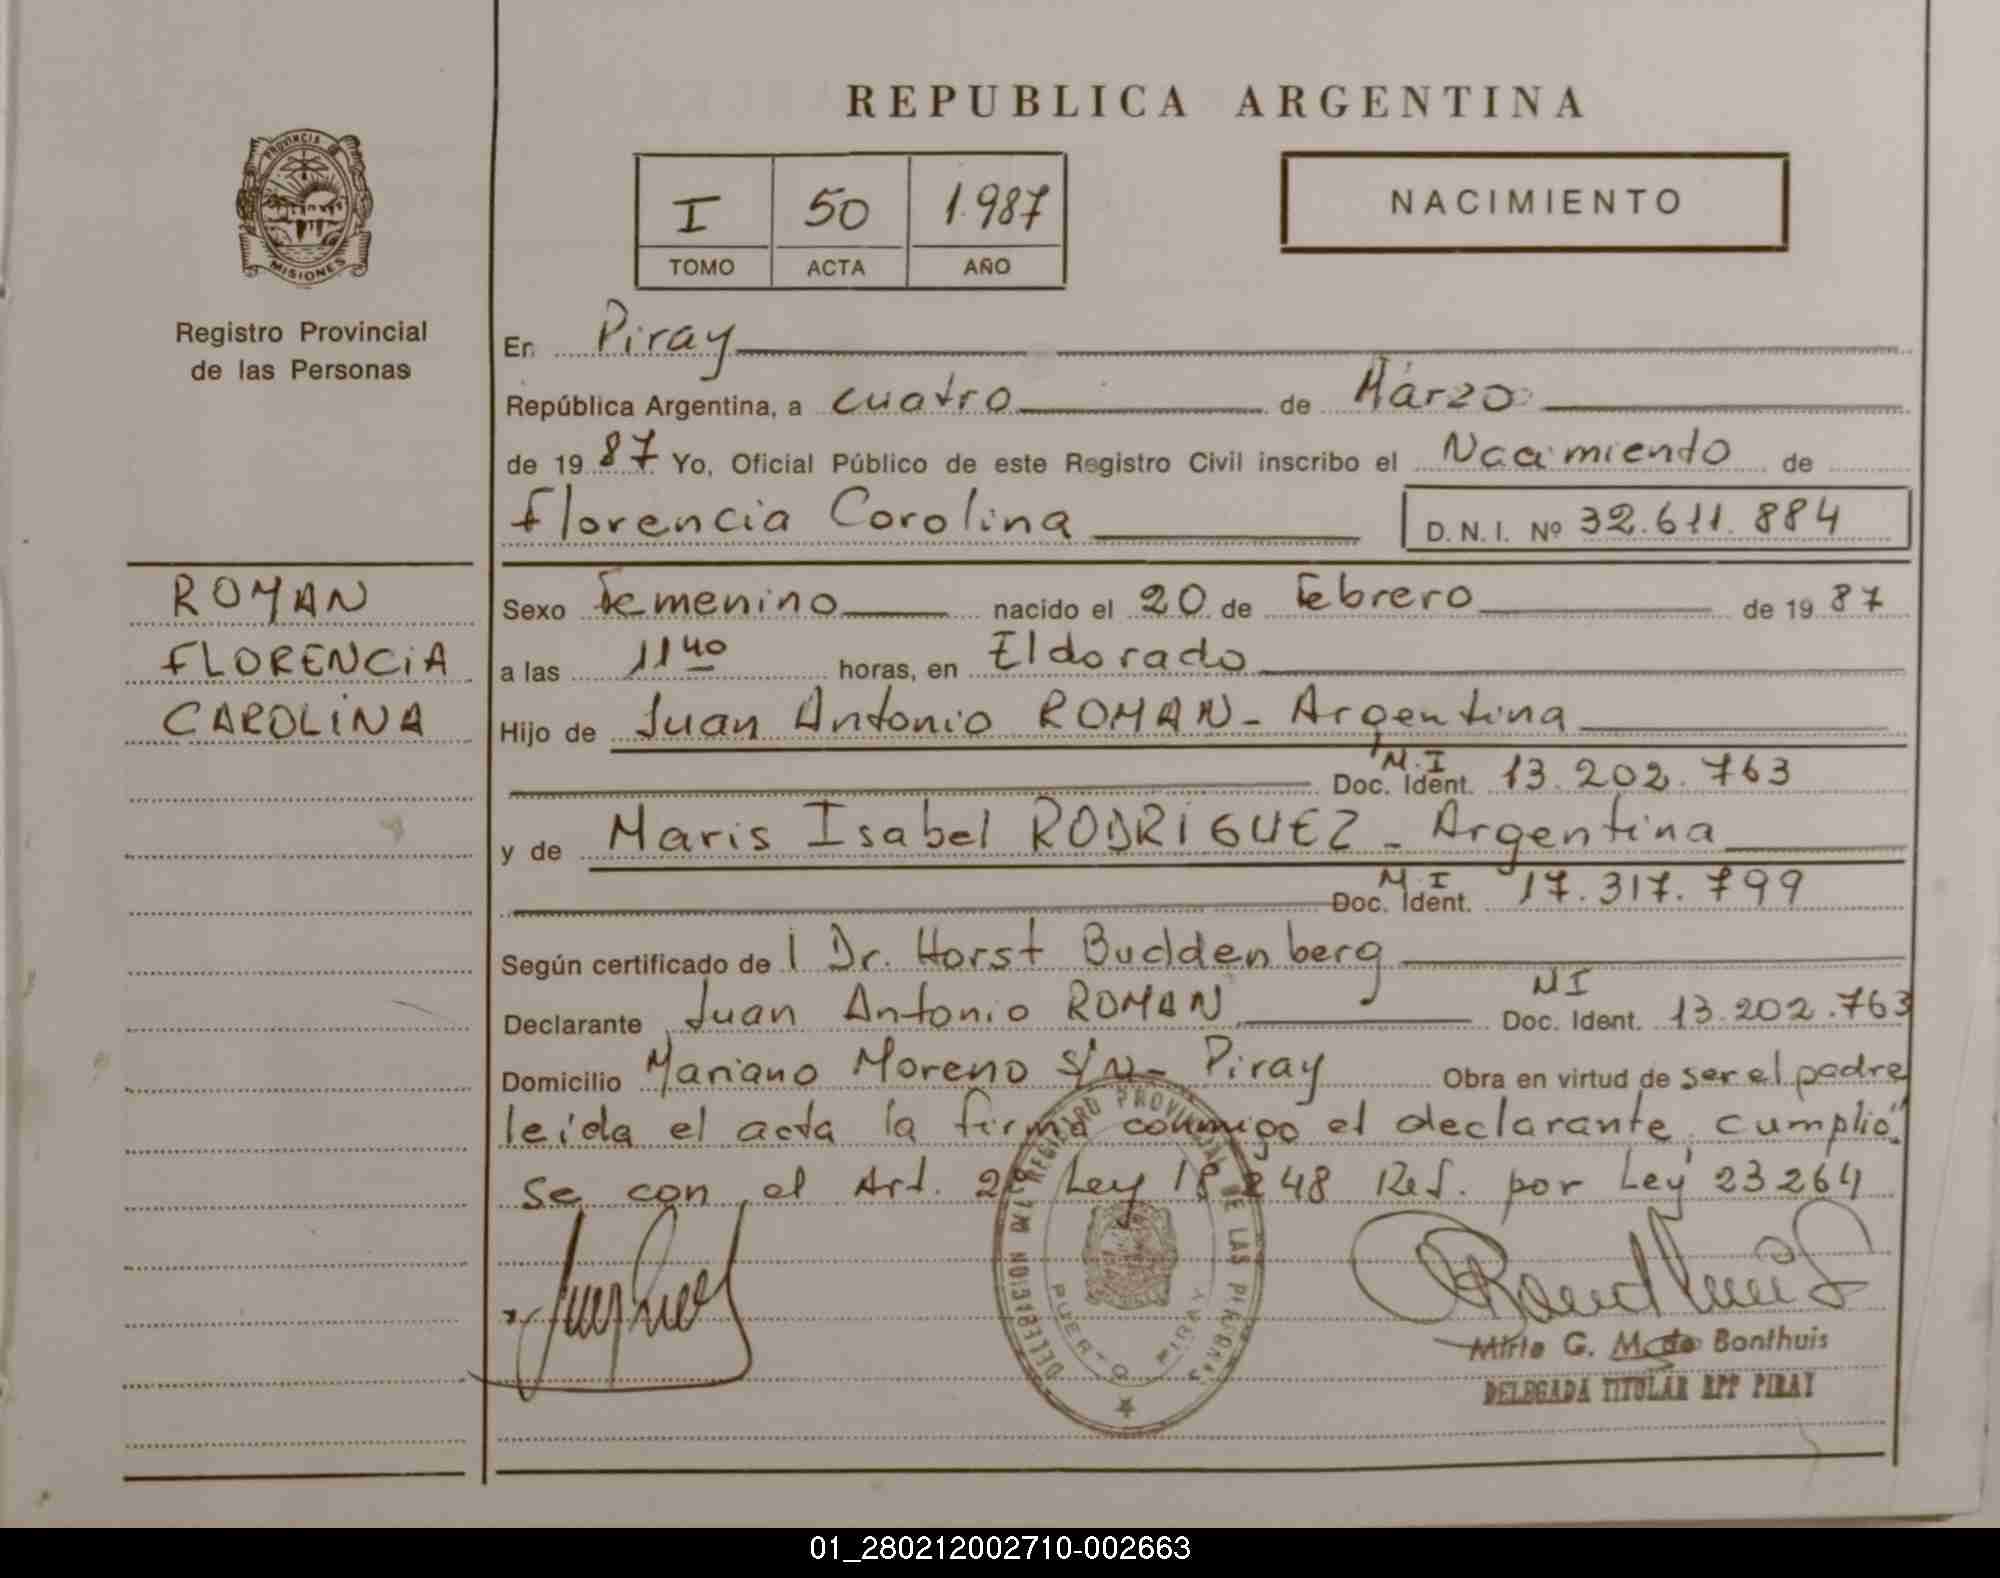 REPUBLICA ARGENTINA
PROVINCIA DE
MISIONES
Registro Provincial
de las Personas
I 50 1.987
TOMO ACTA AÑO
NACIMIENTO
En Piray
República Argentina, a cuatro de Marzo
de 1987 Yo, Oficial Público de este Registro Civil inscribo el Nacimiento de
Florencia Carolina D.N.I. Nº 32.611.884
ROMAN
FLORENCIA
CAROLINA
Sexo Femenino nacido el 20 de Febrero de 1987
a las 11 40 horas, en Eldorado
Hijo de Juan Antonio ROMAN - Argentina
M.I
Doc. Ident. 13.202.763
y de Maris Isabel RODRIGUEZ - Argentina
M.I
Doc. Ident. 17.317.799
Según certificado de l Dr. Horst Buddenberg
Declarante Juan Antonio ROMAN MI Doc. Ident. 13.202.763
Domicilio Mariano Moreno s/n - Piray Obra en virtud de ser el padre
leída el acta la firma conmigo el declarante, cumplió"
se con el Art. 2º Ley 18248 Ref. por Ley 23264
DELEGACION DEL REGISTRO PROVINCIAL DE LAS PERSONAS
PUERTO PIRAY
Mirta G. M. de Bonthuis
DELEGADA TITULAR RPP PIRAY
01_280212002710-002663